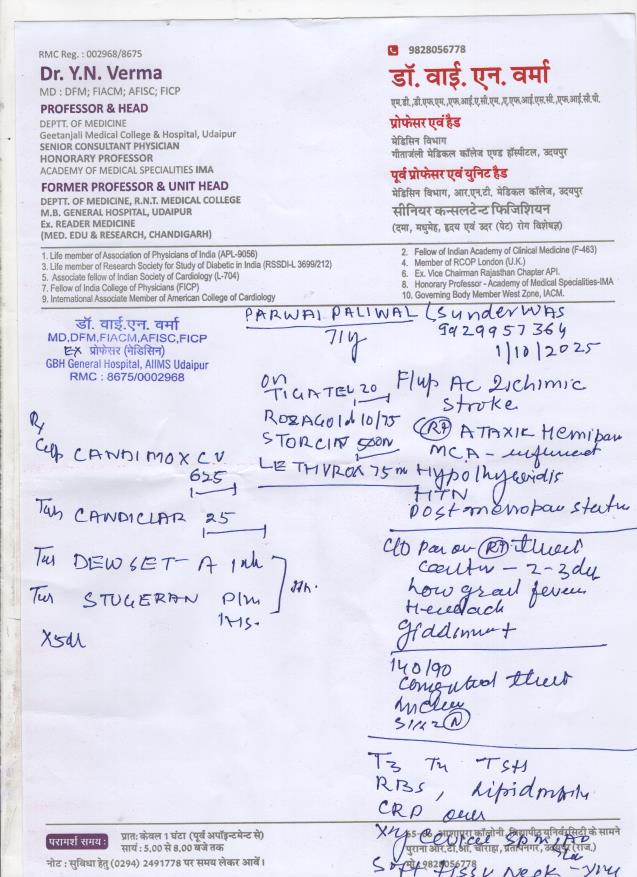 RMC Reg. : 002968/8675
Dr. Y.N. Verma
MD : DFM; FIACM; AFISC; FICP
PROFESSOR & HEAD
DEPTT. OF MEDICINE
Geetanjali Medical College & Hospital, Udaipur
SENIOR CONSULTANT PHYSICIAN
HONORARY PROFESSOR
ACADEMY OF MEDICAL SPECIALITIES IMA
FORMER PROFESSOR & UNIT HEAD
DEPTT. OF MEDICINE, R.N.T. MEDICAL COLLEGE
M.B. GENERAL HOSPITAL, UDAIPUR
Ex. READER MEDICINE
(MED. EDU & RESEARCH, CHANDIGARH)
9828056778
डॉ. वाई. एन. वर्मा
एम.डी. ,डी.एफ.एम. ,एफ.आई.ए.सी.एम. ,ए.एफ.आई.एस.सी. ,एफ.आई.सी.पी.
प्रोफेसर एवं हैड
मेडिसिन विभाग
गीतांजली मेडिकल कॉलेज एण्ड हॉस्पीटल, उदयपुर
पूर्व प्रोफेसर एवं यूनिट हैड
मेडिसिन विभाग, आर.एन.टी. मेडिकल कॉलेज, उदयपुर
सीनियर कन्सलटेन्ट फिजिशियन
(दमा, मधुमेह, हृदय एवं उदर (पेट) रोग विशेषज्ञ)
1. Life member of Association of Physicians of India (APL-9056)
3. Life member of Research Society for Study of Diabetic in India (RSSDI-L 3699/212)
5. Associate fellow of Indian Society of Cardiology (L-704)
7. Fellow of India College of Physicians (FICP)
9. International Associate Member of American College of Cardiology
2. Fellow of Indian Academy of Clinical Medicine (F-463)
4. Member of RCOP London (U.K.)
6. Ex. Vice Chairman Rajasthan Chapter API.
8. Honorary Professor - Academy of Medical Specialities-IMA
10. Governing Body Member West Zone, IACM.
PARWAI PALIWAL (SunderWAS
71y
9929957364
1/10/2025
डॉ. वाई.एन. वर्मा
MD,DFM,FIACM,AFISC,FICP
EX प्रोफेसर (मेडिसिन)
GBH General Hospital, AIIMS Udaipur
RMC : 8675/0002968
on
TIGATEL 20
ROZAGOLD 10/75
STORCIN 500m
LETHYROX 75m
Rx
Cap CANDIMOX C.V
625
Tab CANDICLAR 25
Tab DEWSET-A
Tab STUGERAN Plm
X5d
F/up AC Ischimic
Stroke
(Rt) ATAXIC Hemipar
MCA - infarct
Hypothyroidis
HTN
Postmenopau status
C/O Pain (Rt)
2-3 day
low grad fever
Headach
Giddiness
140/90
Congested throat
S1S2 (N)
T3 T4 TSH
RBS, Lipid
CRP
Xray Cervical Spin AP
Soft tissue Neck - Xray
परामर्श समय :
प्रात: केवल 1 घंटा (पूर्व अपॉइन्टमेन्ट से)
सायं : 5.00 से 8.00 बजे तक
नोट : सुविधा हेतु (0294) 2491778 पर समय लेकर आवें।
65-66, आशापुरा कॉलोनी, विद्यापीठ यूनिवर्सिटी के सामने
पुराना आर.टी.ओ. चौराहा, प्रतापनगर, उदयपुर (राज.)
मो. 9828056778